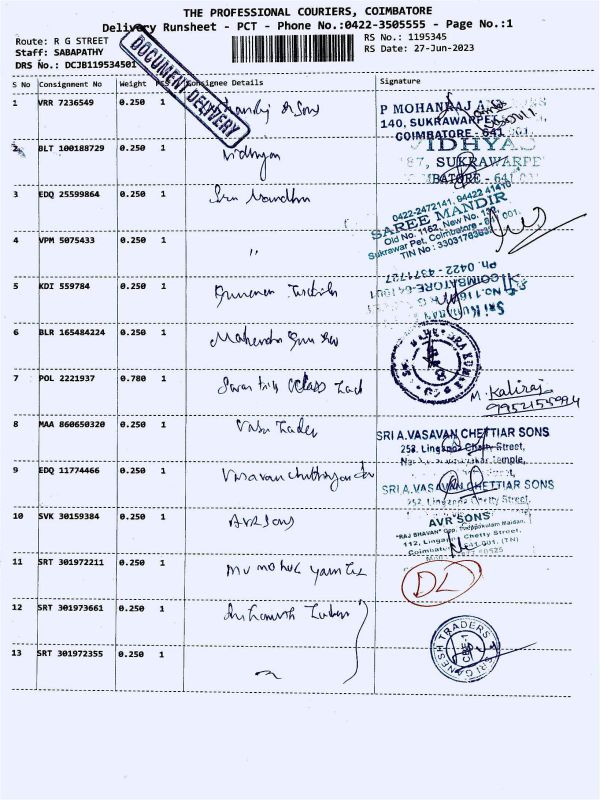 THE PROFESSIONAL COURIERS, COIMBATORE
Delivery Runsheet - PCT - Phone No.:0422-3505555 - Page No.:1
Route: R G STREET
RS No.: 1195345
Staff: SABAPATHY
RS Date: 27-Jun-2023
DRS No.: DCJB119534501
DOCUMENT DELIVERY
S No Consignment No Weight Pcs Consignee Details Signature
1 VRR 7236549 0.250 1
P MOHANRAJ & SONS
140, SUKRAWARPET
COIMBATORE - 641 001.
2 BLT 100188729 0.250 1 Vidhyas
VIDHYAS
87, SUKRAWARPE
MBATORE - 641 001
3 EDQ 25599864 0.250 1 Sree Mandhir
0422-2472141, 94422 41410
SAREE MANDIR
Old No. 1162, New No. 139,
Sukrawar Pet, Coimbatore - 641 001.
TIN No : 3303176
4 VPM 5075433 0.250 1 "
5 KDI 559784 0.250 1
Ph. 0422 - 4371727
COIMBATORE-641001
Sri Kumaran
6 BLR 165484224 0.250 1 Mahendra
7 POL 2221937 0.780 1
M. Kaliraj
9952155994
8 MAA 860650320 0.250 1 Vasu Traders
SRI A.VASAVAN CHETTIAR SONS
253, Linganna Chetty Street,
Temple,
9 EDQ 11774466 0.250 1 Vasavan
SRI A.VASAVAN CHETTIAR SONS
252, Linganna Chetty Street,
10 SVK 30159384 0.250 1 AVR Sons
AVR SONS
"RAJ BHAVAN" Opp. Theppakulam Maidan,
112, Linganna Chetty Street,
Coimbatore 641 001. (TN)
11 SRT 301972211 0.250 1
DL
12 SRT 301973661 0.250 1
13 SRT 301972355 0.250 1
SRI GANESH TRADERS
CBE-1